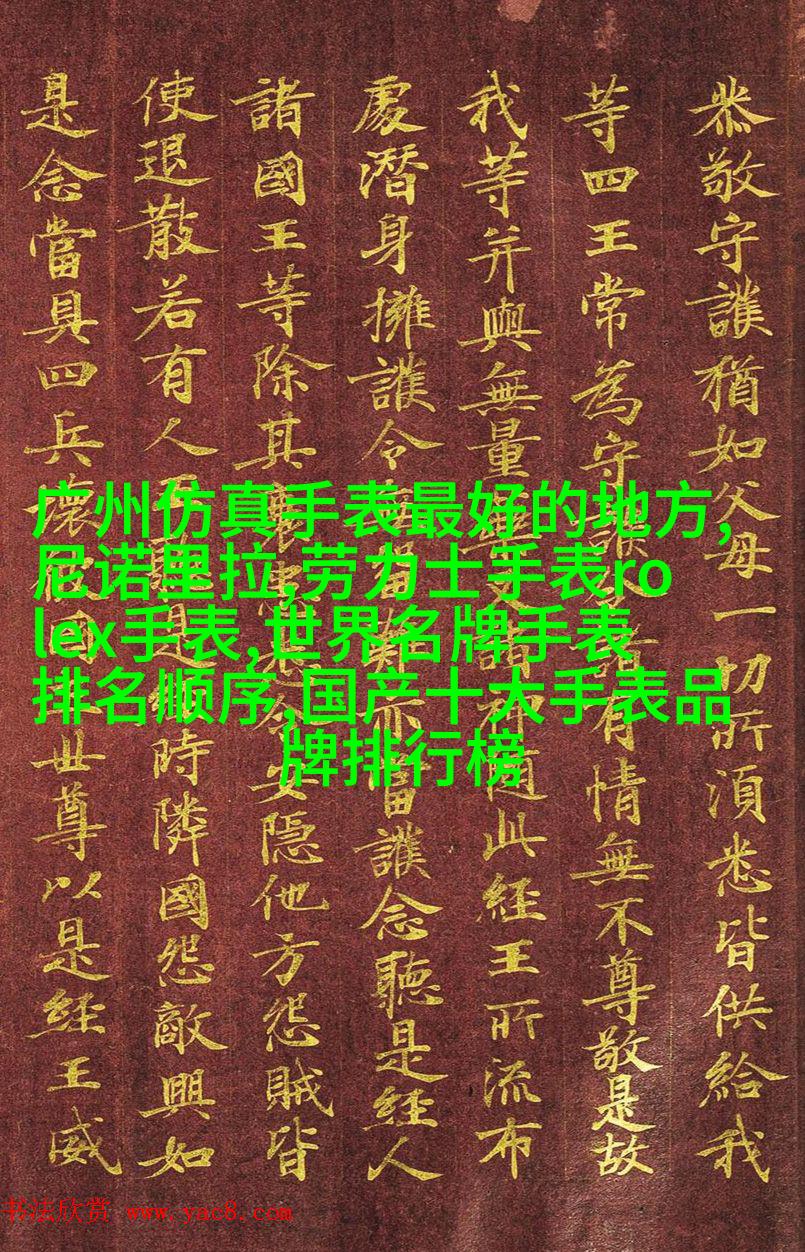 恭敬守護猶如父母一切所湏悉皆供給我
等四王常為守護 有情無不尊敬是故
我等并與無量藥叉諸神隨此經王所流布
處潛身擁護令無留難亦當護念聽是經人
諸國王等除其衰患悉令安隱他方怨賊皆
使退散若有人王聽是經時隣國怨敵興如
是念當具四兵壞彼國土世尊以是經王威
广州仿真手表最好的地方,
尼诺里拉,劳力士手表ro
lex手表,世界名牌手表
排名顺序,国产十大手表品
牌排行榜
书法欣赏 www.yac8.com